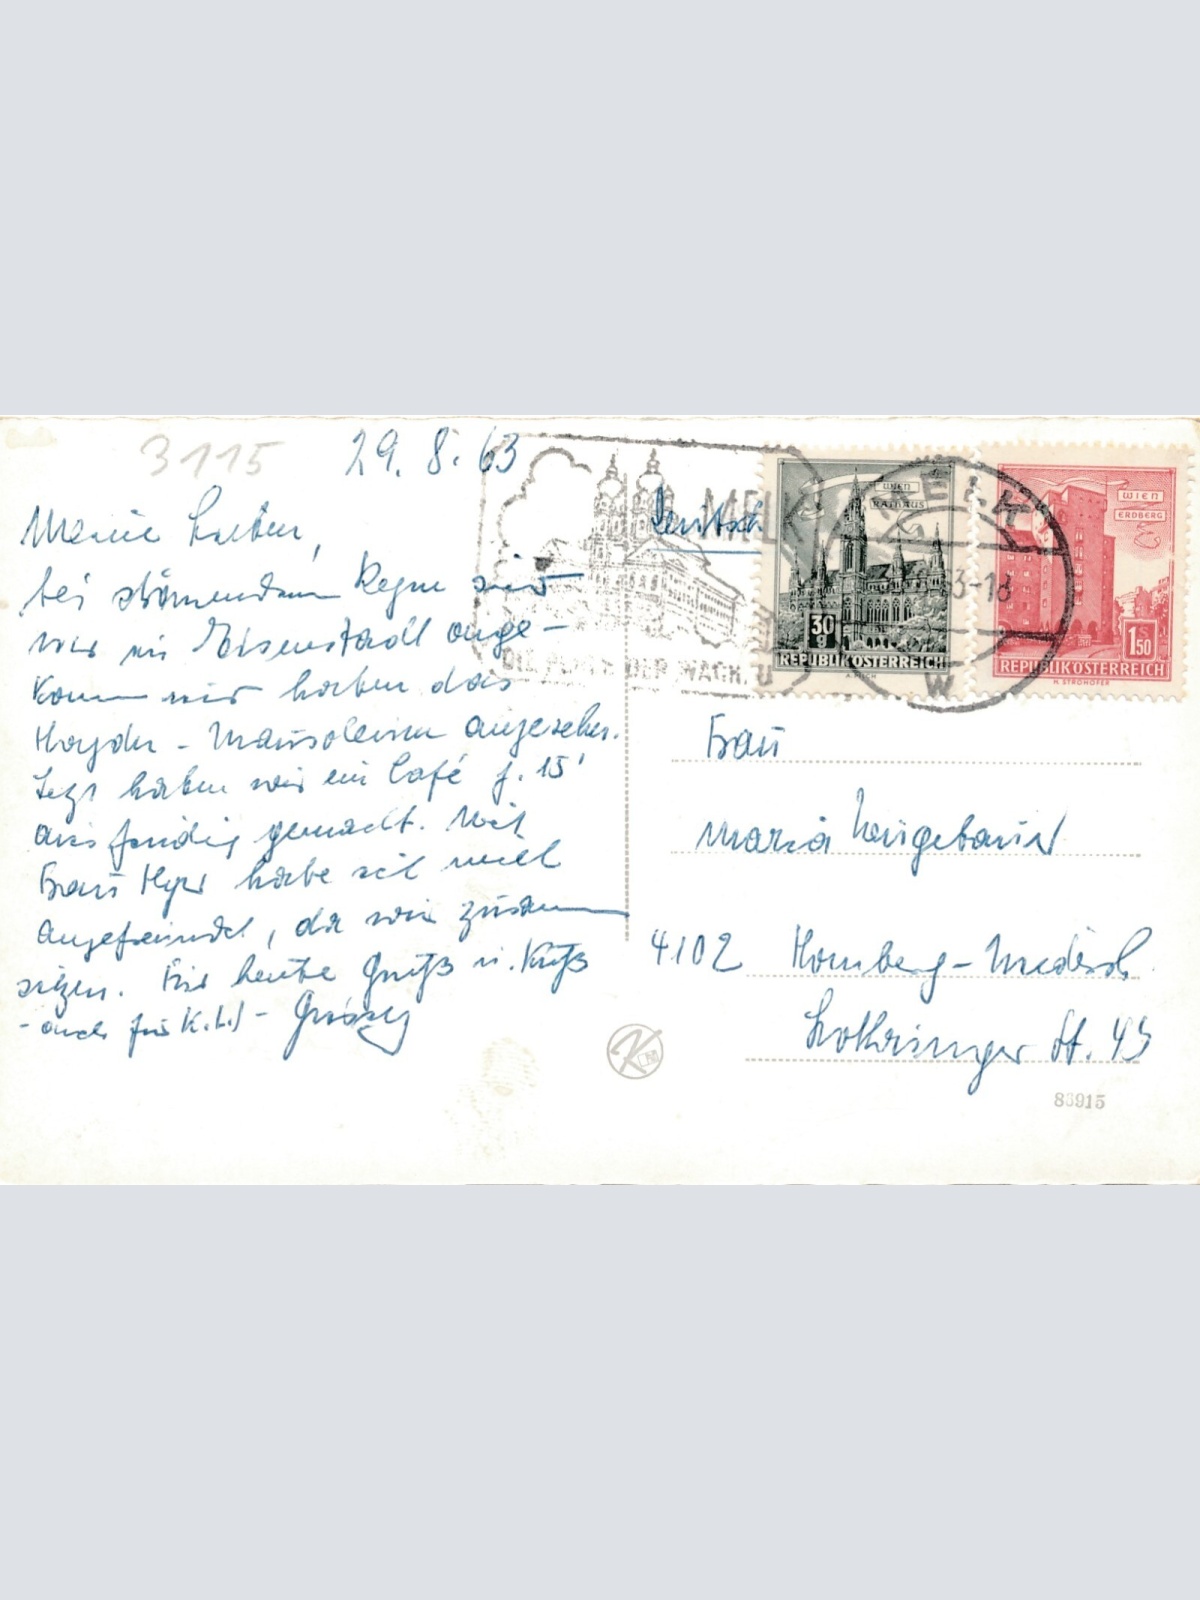 3115
29. 8. 63
Meine Lieben,
bei strömendem Regen sind
wir in Eisenstadt ange-
kommen wir haben das
Haydn - Mausoleum angesehen.
Jetzt haben wir ein Café f. 15'
ausfindig gemacht. Mit
Frau habe ich mich
angefreundet, da wir zusammen
sitzen. Für heute Gruß u. Kuß
- auch für K.L.) -
MELK
DIE PFORTE DER WACHAU
MELK
63-18
W
WIEN
RATHAUS
30
g
REPUBLIK ÖSTERREICH
A. PILCH
WIEN
ERDBERG
S
1.50
REPUBLIK ÖSTERREICH
H. STROHOFER
Frau
Maria Neugebauer
4102 Homberg-Niederrh.
Lothringer St. 45
K LM
86915